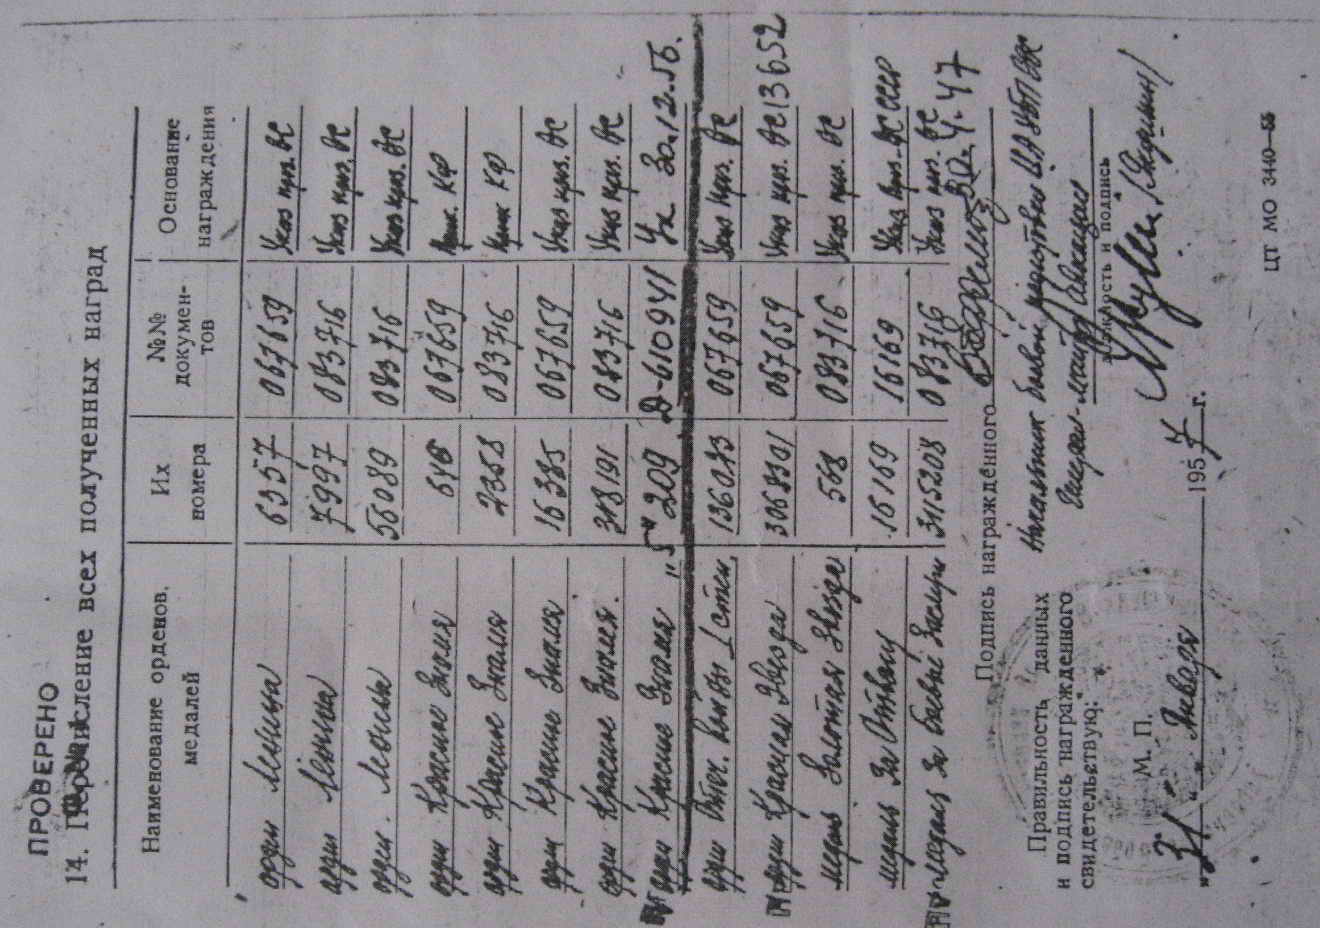 ПРОВЕРЕНО
14. Перечисление всех полученных наград
Наименование орденов, медалей | Их номера | №№ документов | Основание награждения
орден Ленина 6357 067659 Указ през. ВС
орден Ленина 7997 083716 Указ през. ВС
орден Ленина 56089 083716 Указ през. ВС
орден Красное Знамя 067659 КФ
орден Красное Знамя 2358 083716 КФ
орден Красное Знамя 16385 067659 Указ през. ВС
орден Красное Знамя 318191 083716 Указ през. ВС
орден Красное Знамя "5" 209 Д-610941 Ук. 30.12.56.
орден Отеч. войны I степ. 136083 067659 Указ през. ВС
орден Красная Звезда 3068801 067659 Указ през. ВС 13652
медаль Золотая Звезда 568 083716 Указ през. ВС
медаль За Отвагу 16169 16169 Указ през. ВС СССР
медаль За боевые Заслуги 3115208 083716 Указ през. ВС
Подпись награжденного
Правильность данных
и подпись награжденного
свидетельствую:
М. П.
должность и подпись
"31" Января 1957 г.
ЦТ МО 3440—55